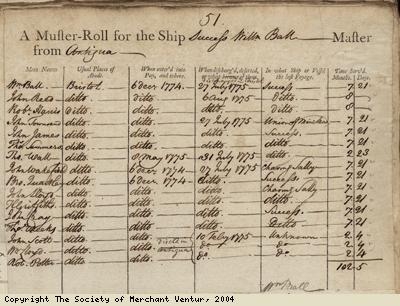 51.
A Muster-Roll for the Ship Success Willm Ball Master
from Antigua
Men's Names Usual Places of Abode. When enter'd into Pay, and where. When discharg'd, deserted, In what Ship or Vessel the last Voyage. Time Serv'd. Months. Days.
Wm Ball Bristol 6 decr 1774 27 July 1775 Success 7. 21
John Rees ditto. ditto 6 Aug 1775 ditto 8
Robt Harris ditto. ditto. ditto. ditto 8
John ditto. ditto. 27 July 1775 Union of 7. 21
John James ditto. ditto. ditto. Success. 7. 21
Thos ditto. ditto. ditto. ditto. 7. 21
Thos Wall ditto. 8 May 1775 21 July 1775 ditto 2. 23
John ditto. 6 decr 1774 27 July 1775 Charming Sally 7. 21
ditto. 6 decr 1774 ditto. Success 7. 21
John Lloyd ditto. ditto. ditto. Charming Sally 7. 21
ditto. ditto. ditto. ditto. 7. 21
John ditto. ditto. ditto. Success. 7. 21
Thos ditto. ditto. ditto. Ditto 7. 21
John Scott ditto. 10 July 1775 Unknown 2. 4
ditto. Antigua do do 2. 4
Robt Potter do. do do 2. 4
102. 5
Wm Ball
Copyright The Society of Merchant Ventur, 2004